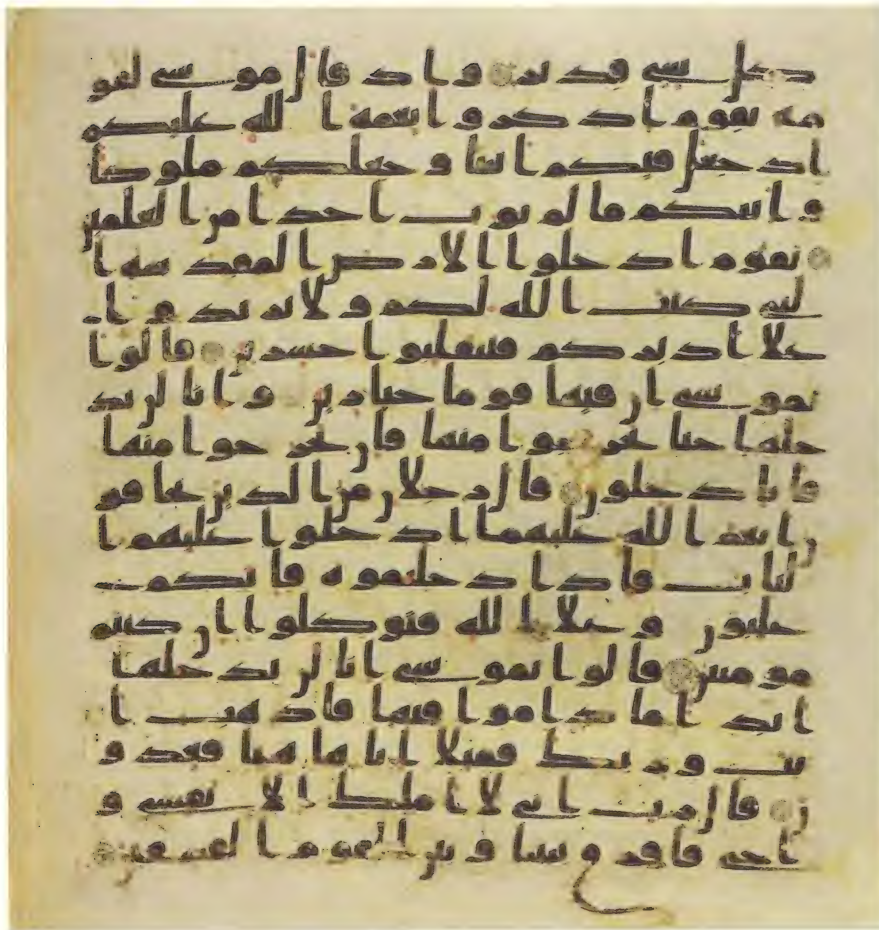 كل شي قدير و اذ قال موسى لقو
مه يقوم اذكروا نعمة الله عليكم
اذ جعل فيكم انبيا و جعلكم ملوكا
و اتيكم ما لم يوت احدا من العلمين
يقوم ادخلوا الارض المقدسة ا
لتي كتب الله لكم و لا ترتدوا
علا ادبركم فتنقلبوا خسرين قالوا
يموسى ان فيها قوما جبارين و انا لن ند
خلها حتا يخرجوا منها فان يخرجوا منها
فانا دخلون قال رجلان من الذين يخافو
ن انعم الله عليهما ادخلوا عليهم ا
لباب فاذا دخلتموه فانكم
غلبون و علا الله فتوكلوا ان كنتم
مومنين قالوا يموسى انا لن ندخلها
ابدا ما داموا فيها فاذهب ا
نت و ربك فقتلا انا هاهنا قعدو
ن قال رب اني لا املك الا نفسي و
اخي فافرق بيننا و بين القوم الفسقين